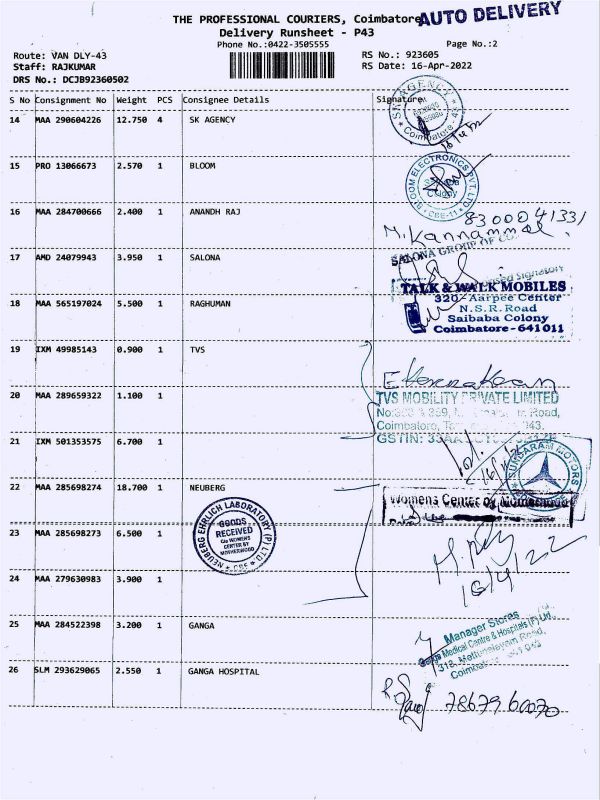 THE PROFESSIONAL COURIERS, Coimbatore
AUTO DELIVERY
Delivery Runsheet - P43
Phone No.:0422-3505555
Page No.:2
Route: VAN DLY-43
RS No.: 923605
Staff: RAJKUMAR
RS Date: 16-Apr-2022
DRS No.: DCJB92360502
S No Consignment No Weight PCS Consignee Details Signature
14 MAA 290604226 12.750 4 SK AGENCY
SK AGENCY
Coimbatore
15 PRO 13066673 2.570 1 BLOOM
BLOOM ELECTRONICS PVT. LTD
Colony
CBE-11
16 MAA 284700666 2.400 1 ANANDH RAJ
8300041331
M. Kannammal
17 AMD 24079943 3.950 1 SALONA
SALONA GROUP OF CO
Signatory
18 MAA 565197024 5.500 1 RAGHUMAN
TALK & WALK MOBILES
320- Aarpee Center
N.S.R. Road
Saibaba Colony
Coimbatore - 641011
19 IXM 49985143 0.900 1 TVS
20 MAA 289659322 1.100 1
TVS MOBILITY PRIVATE LIMITED
Road,
Coimbatore,
GSTIN:
21 IXM 501353575 6.700 1
SUNDARAM MOTORS
22 MAA 285698274 18.700 1 NEUBERG
Womens Center by Motherhood
NEUBERG EHRLICH LABORATORY (P) LTD
GOODS
RECEIVED
C/o WOMENS
CENTER BY
MOTHERWOOD
CBE
23 MAA 285698273 6.500 1
16/4/22
24 MAA 279630983 3.900 1
25 MAA 284522398 3.200 1 GANGA
Manager Stores
Ganga Medical Centre & Hospitals (P) Ltd,
313, Mettupalayam Road,
26 SLM 293629065 2.550 1 GANGA HOSPITAL
7867960070